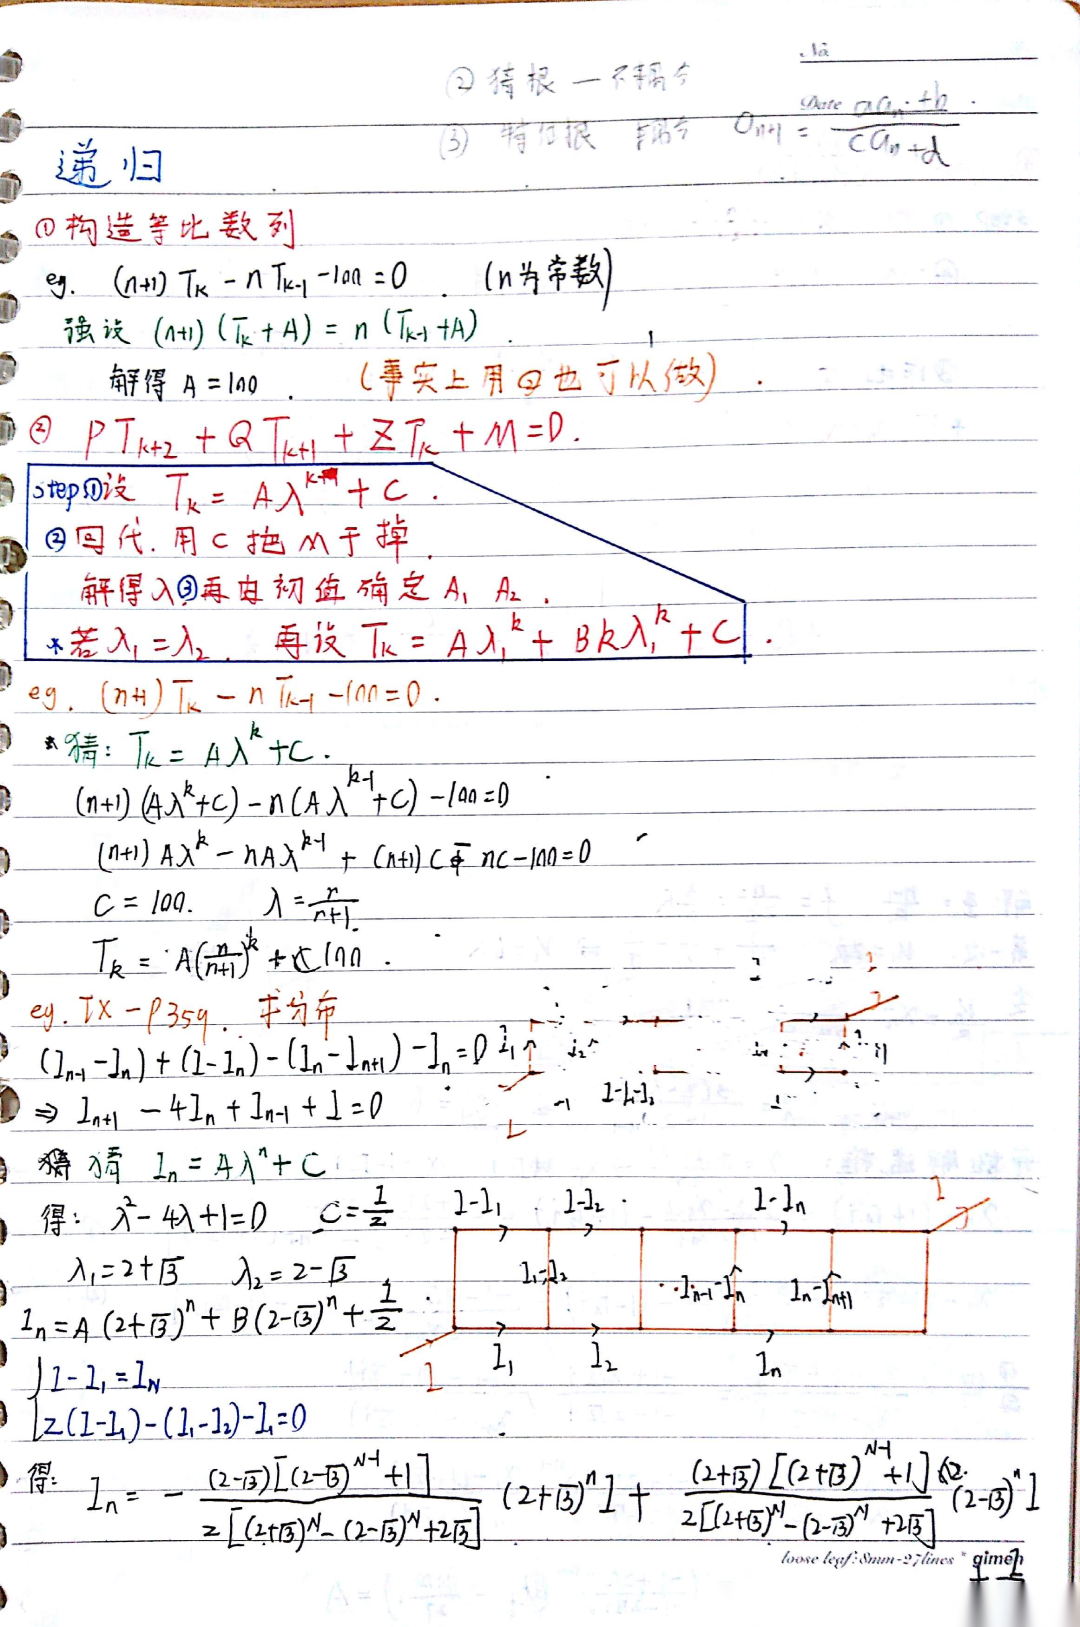 No
② 猜根 — 不耦合
Date
(3) 特征根 耦合 a_{n+1} = (a a_n + b)/(c a_n + d)
递归
① 构造等比数列
eg. (n+1) T_k - n T_{k-1} - 100 = 0 . (n为常数)
强设 (n+1) (T_k + A) = n (T_{k-1} + A)
解得 A = 100 . (事实上用②也可以做) .
② P T_{k+2} + Q T_{k+1} + Z T_k + M = 0 .
step①设 T_k = Aλ^k + C .
②回代. 用 C 把 M 干掉.
解得λ ③再由初值确定 A_1 A_2 .
*若 λ_1 = λ_2 . 再设 T_k = Aλ_1^k + Bkλ_1^k + C .
eg. (n+1) T_k - n T_{k-1} - 100 = 0 .
*猜: T_k = Aλ^k + C .
(n+1) (Aλ^k + C) - n (Aλ^{k-1} + C) - 100 = 0
(n+1) Aλ^k - nAλ^{k-1} + (n+1) C - nC - 100 = 0
C = 100. λ = n/(n+1).
T_k = A(n/(n+1))^k + 100 .
eg. TX - P359. 求分布
(I_{n-1} - I_n) + (I - I_n) - (I_n - I_{n+1}) - I_n = 0
⇒ I_{n+1} - 4I_n + I_{n-1} + I = 0
I_1 I_2
I - I_1 - I_2
I
猜 I_n = Aλ^n + C
得: λ² - 4λ + 1 = 0 C = I/2
λ_1 = 2+√3 λ_2 = 2-√3
I_n = A (2+√3)^n + B (2-√3)^n + I/2 .
I-I_1 I-I_2 I-I_n I
I_1-I_2 I_{n-1}-I_n I_n-I_{n+1}
I I_1 I_2 I_n
{ I - I_1 = I_N
2(I-I_1) - (I_1-I_2) - I_1 = 0
得: I_n = - (2-√3)[(2-√3)^{N-1} + 1] / 2[(2+√3)^N - (2-√3)^N + 2√3] (2+√3)^n I + (2+√3)[(2+√3)^{N-1} + 1] / 2[(2+√3)^N - (2-√3)^N + 2√3] (2-√3)^n I
loose leaf: 8mm-27lines * gimen
1-2